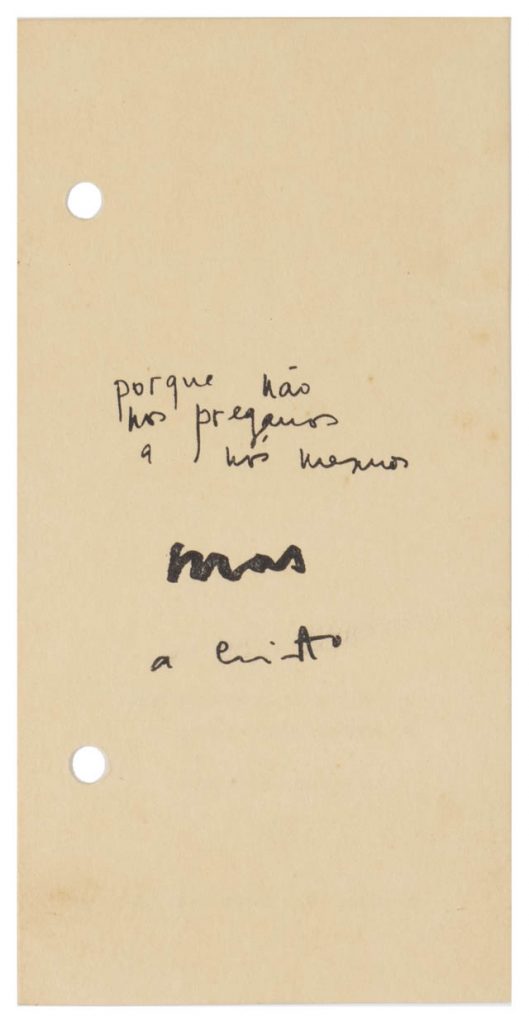 porque não
nos pregamos
a nós mesmos
mas
a Cristo